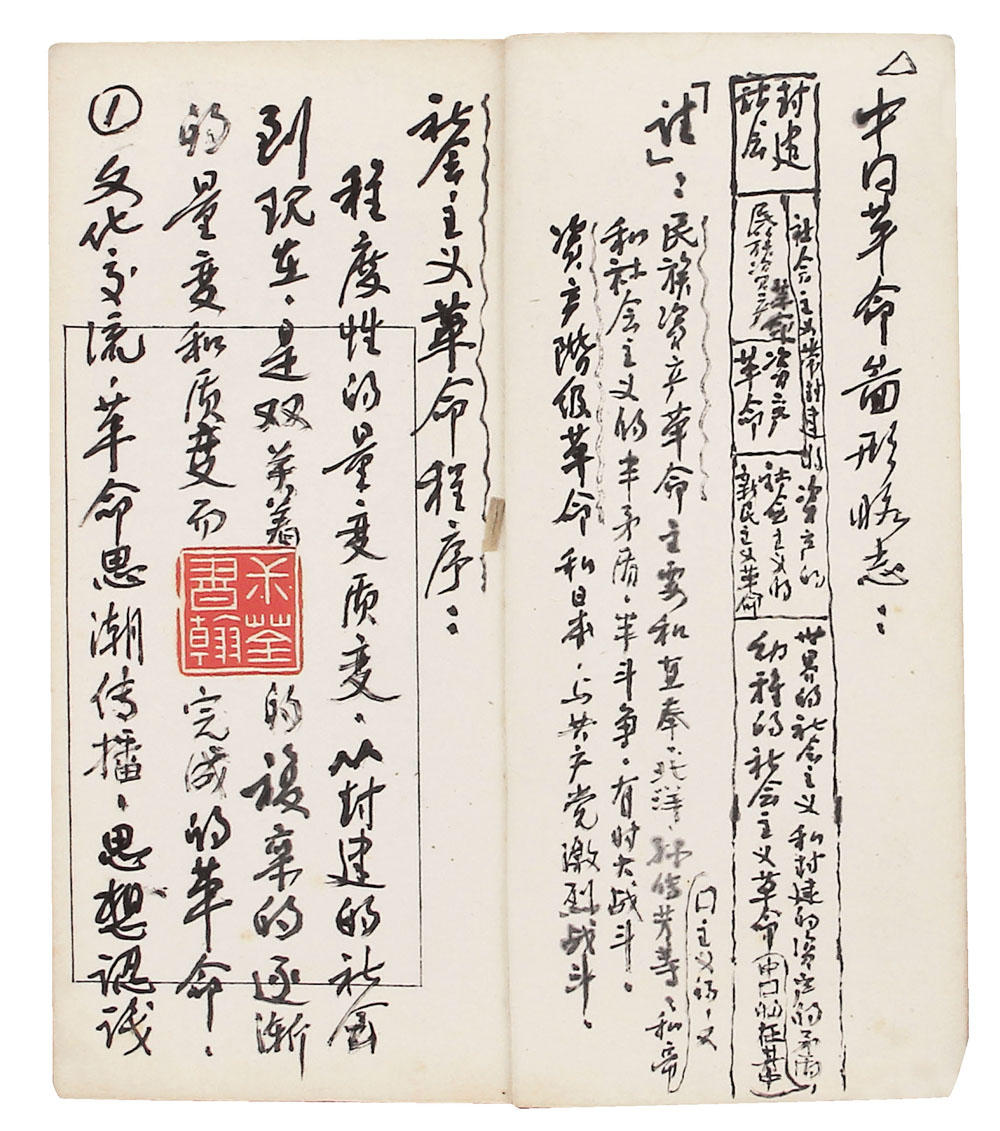 △
中国革命图形略志：
封建
社会
社会主义带封建的资产的
民族资产
革命
资产
革命
社会主义的
新民主主义革命
世界的社会主义和封建的资产的矛盾，
幼稚的社会主义革命
「注」：民族资产革命主要和直奉、北洋、孙传芳等、和
和社会主义的半矛盾、半斗争，有时大战斗。
资产阶级革命和日本、与共产党激烈战斗。
社会主义革命程序：
程度性的量变质变，从封建的社会
到现在，是双关着的复杂的逐渐
的量变和质变而完成的革命。
①文化交流，革命思潮传播，思想認识